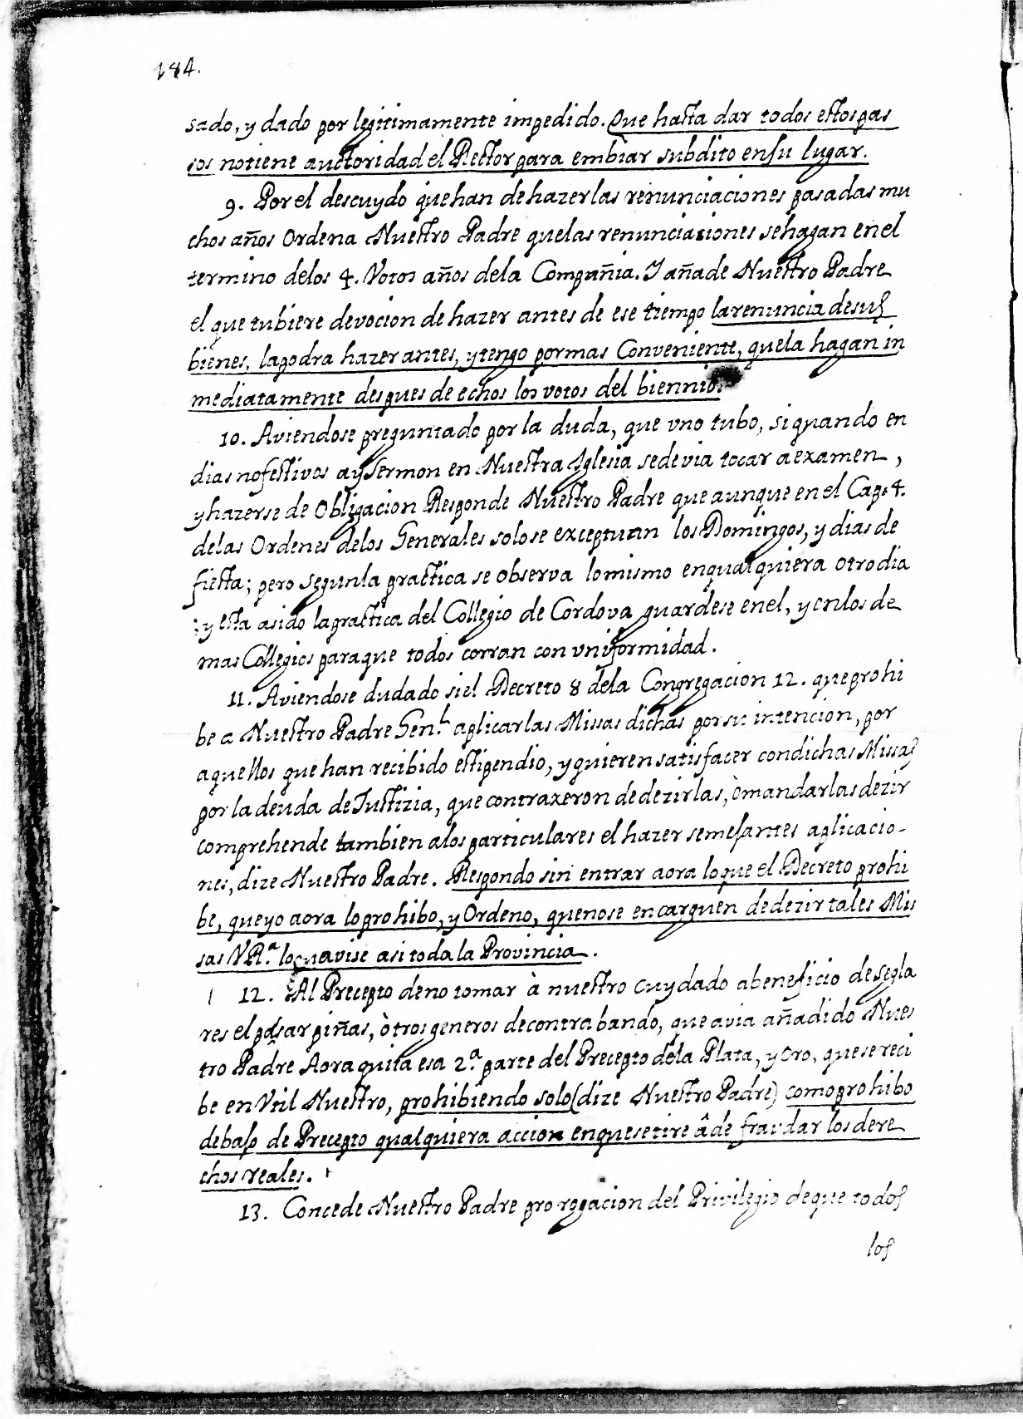 184.
sado, y dado por legitimamente impedido. Que hasta dar todos estos pas
sos no tiene auctoridad el Rector para embiar subdito en su lugar.
9. Por el descuydo que han de hazer las renunciaciones pasadas mu
chos años Ordena Nuestro Padre que las renunciaciones se hagan en el
termino de los 4. Votos años de la Compañia. Y añade Nuestro Padre
el que tubiere devocion de hazer antes de ese tiempo la renuncia de sus
bienes, la podra hazer antes, y tengo por mas Conveniente, que la hagan in
mediatamente despues de echos los votos del biennio.
10. Aviendose preguntado por la duda, que vno tubo, si quando en
dias no festivos ay Sermon en Nuestra Iglesia se devia tocar a examen,
y hazerse de Obligacion Responde Nuestro Padre que aunque en el Cap. 4.
de las Ordenes de los Generales solo se exceptuan los Domingos, y dias de
fiesta; pero segun la practica se observa lo mismo en qualquiera otro dia
; y esta a sido la practica del Collegio de Cordova guardese en el, y en los de
mas Collegios para que todos corran con vniformidad.
11. Aviendose dudado si el Decreto 8 de la Congregacion 12. que prohi
be a Nuestro Padre Gen.l aplicar las Missas dichas por su intencion, por
aquellos que han recibido estipendio, y quieren satisfacer con dichas Missas
por la deuda de Justizia, que contraxeron de dezirlas, ò mandarlas dezir
comprehende tambien a los particulares el hazer semejantes aplicacio-
nes, dize Nuestro Padre. Respondo sin entrar aora lo que el Decreto prohi
be, que yo aora lo prohibo, y Ordeno, que no se encarguen de dezir tales Mis
sas V R.a lo avise asi toda la Provincia.
12. Al Precepto de no tomar à nuestro cuydado a beneficio de segla
res el pasar piñas, ò tros generos de contrabando, que avia añadido Nues
tro Padre Aora quita esa 2.a parte del Precepto de la Plata, y Oro, que se reci
be en Vtil Nuestro, prohibiendo solo (dize Nuestro Padre) como prohibo
debajo de Precepto qualquiera accion en que se tire â de fraudar los dere
chos reales.
13. Concede Nuestro Padre prorogacion del Privilegio de que todos
los